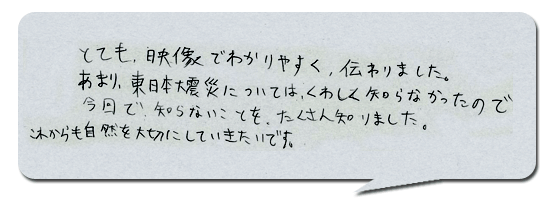 とても、映像でわかりやすく、伝わりました。
あまり、東日本大震災については、くわしく知らなかったので
今回で、知らないことを、たくさん知りました。
これからも自然を大切にしていきたいです。